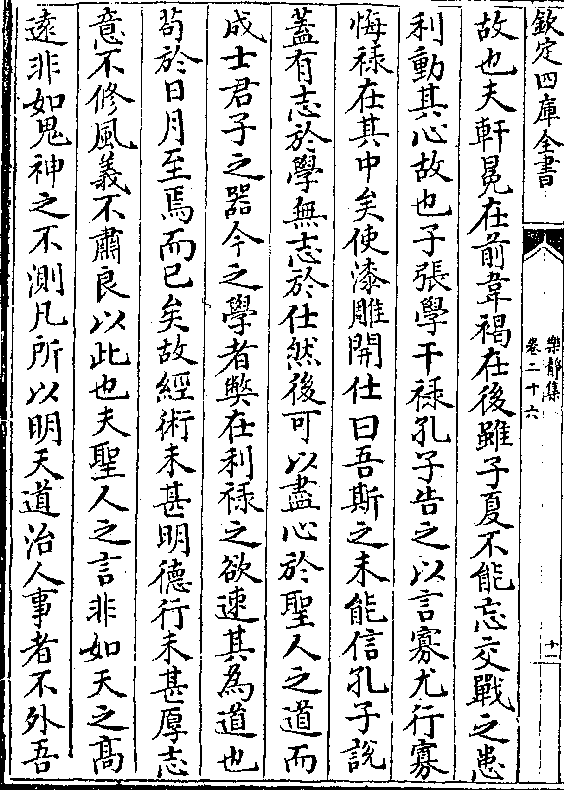 欽定四庫全書
樂靜集
卷二十六
十一
故也夫軒冕在前韋褐在後雖子夏不能忘交戰之患
利動其心故也子張學干禄孔子告之以言寡尤行寡
悔禄在其中矣使漆雕開仕曰吾斯之未能信孔子説
蓋有志於學無志於仕然後可以盡心於聖人之道而
成士君子之器今之學者獘在利禄之欲速其為道也
茍於日月至焉而已矣故經術未甚明德行未甚厚志
意不修風義不肅良以此也夫聖人之言非如天之髙
逺非如鬼神之不測凡所以明天道治人事者不外吾